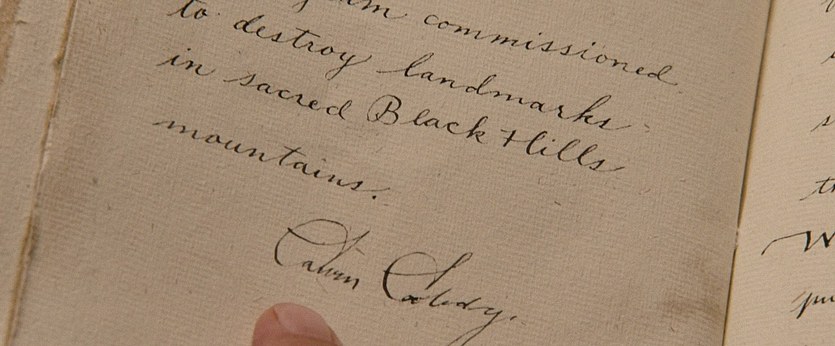 commissioned
to destroy landmarks
in sacred Black Hills
mountains.
Calvin